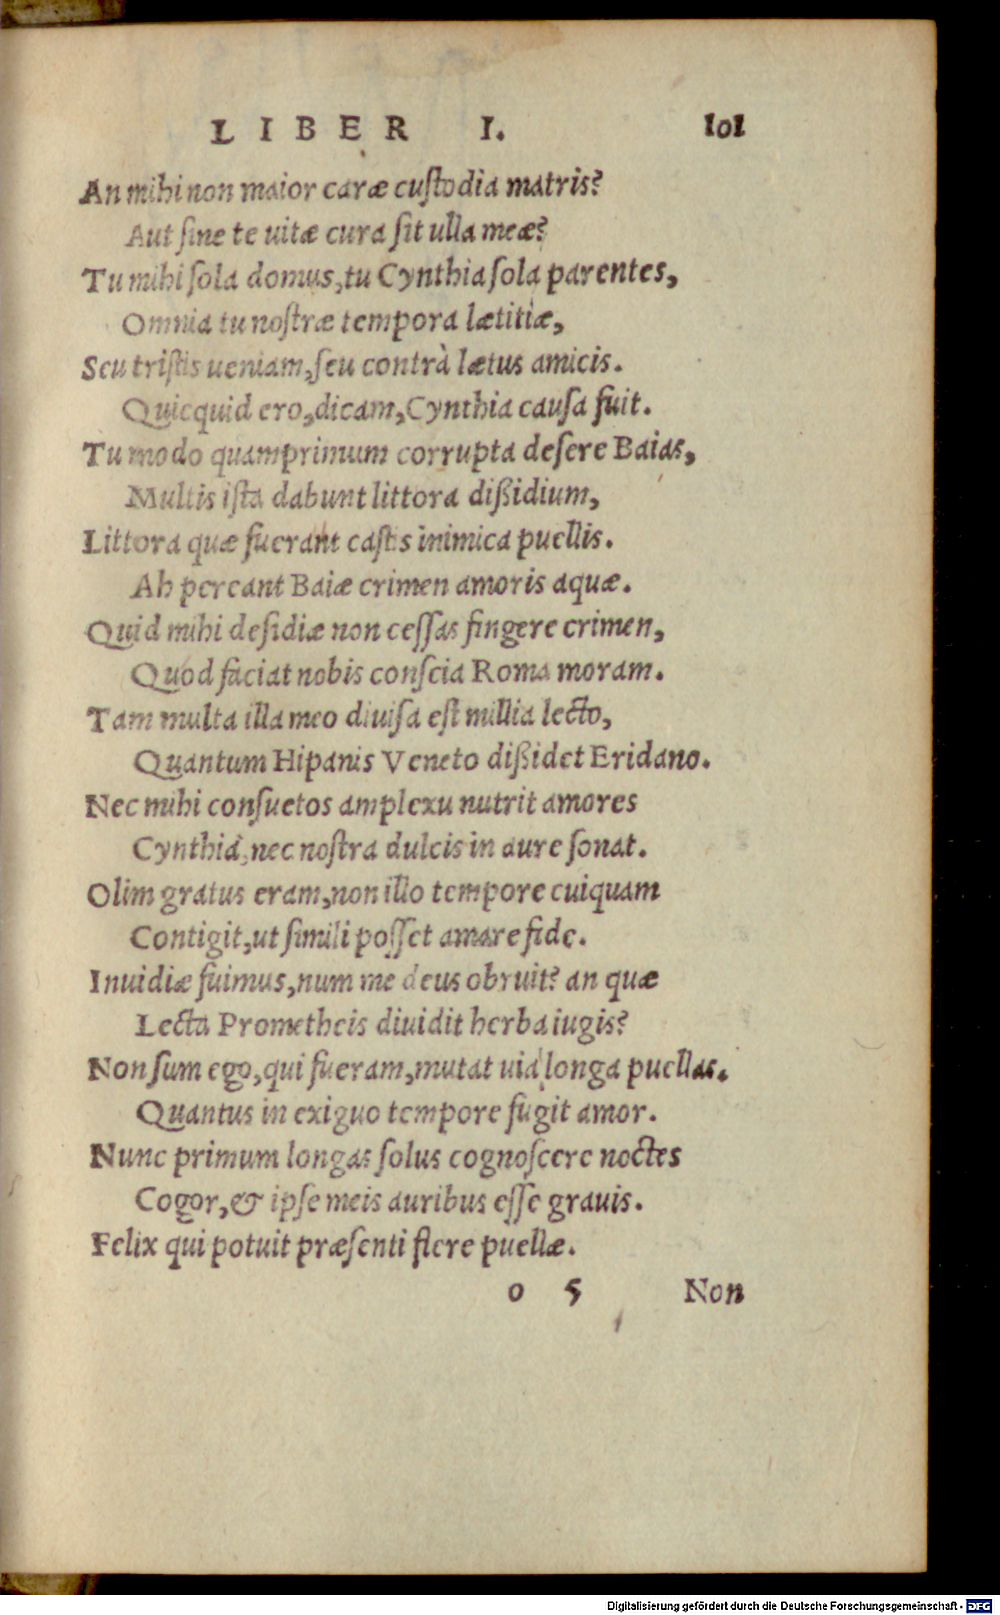 LIBER I. 101
An mihi non maior caræ custodia matris?
Aut sine te uitæ cura sit ulla meæ?
Tu mihi sola domus, tu Cynthia sola parentes,
Omnia tu nostræ tempora lætitiæ,
Seu tristis ueniam, seu contrà lætus amicis.
Quicquid ero, dicam, Cynthia causa fuit.
Tu modo quamprimum corrupta desere Baias,
Multis ista dabunt littora dißidium,
Littora quæ fuerant castis inimica puellis.
Ah pereant Baiæ crimen amoris aquæ.
Quid mihi desidiæ non cessas fingere crimen,
Quod faciat nobis conscia Roma moram.
Tam multa illa meo diuisa est millia lecto,
Quantum Hipanis Veneto dißidet Eridano.
Nec mihi consuetos amplexu nutrit amores
Cynthia, nec nostra dulcis in aure sonat.
Olim gratus eram, non illo tempore cuiquam
Contigit, ut simili posset amare fide.
Inuidiæ fuimus, num me deus obruit? an quæ
Lecta Prometheis diuidit herba iugis?
Non sum ego, qui fueram, mutat uia longa puellas.
Quantus in exiguo tempore fugit amor.
Nunc primum longas solus cognoscere noctes
Cogor, & ipse meis auribus esse grauis.
Felix qui potuit præsenti flere puellæ.
o 5 Non
Digitalisierung gefördert durch die Deutsche Forschungsgemeinschaft - DFG